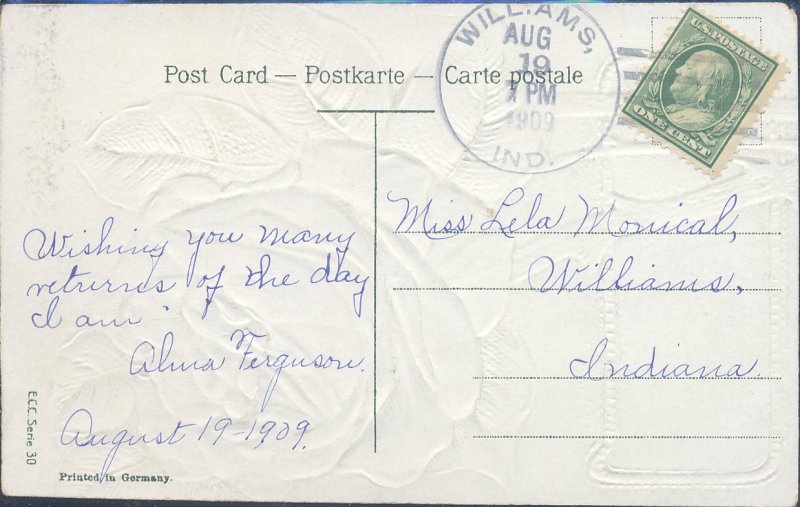 Post Card — Postkarte — Carte postale
WILLIAMS,
AUG
19
7 PM
1909
IND.
U.S. POSTAGE
ONE CENT
Wishing you many
returns of the day
I am.
Alma Ferguson.
August 19-1909.
Miss Lela Monical,
Williams,
Indiana.
E.C.C. Serie 30
Printed in Germany.